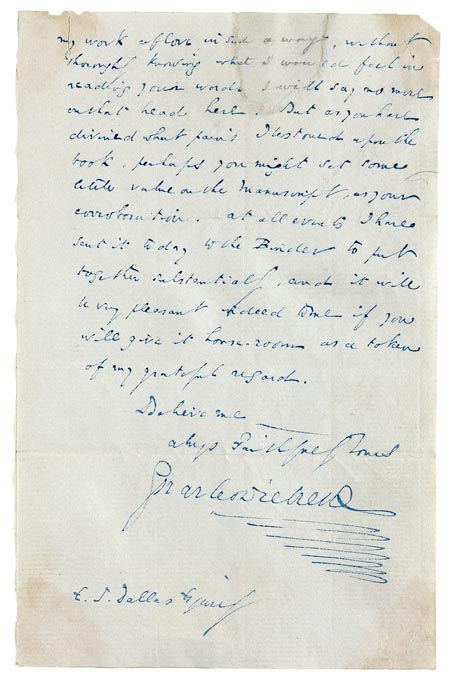 my work of love, in such a way, without
thoroughly knowing what I would feel in
reading your words. I will say no more
on that head here. But as you have
divined what pains I bestowed upon the
book, perhaps you might set some
little value on the manuscript, as your
corroboration. – at all events I have
sent it today to the Binder to put
together substantially, and it will
be very pleasant indeed to me if you
will give it house-room as a token
of my grateful regard.
Believe me
always Faithfully Yours
Charles Dickens
E. S. Dallas Esquire